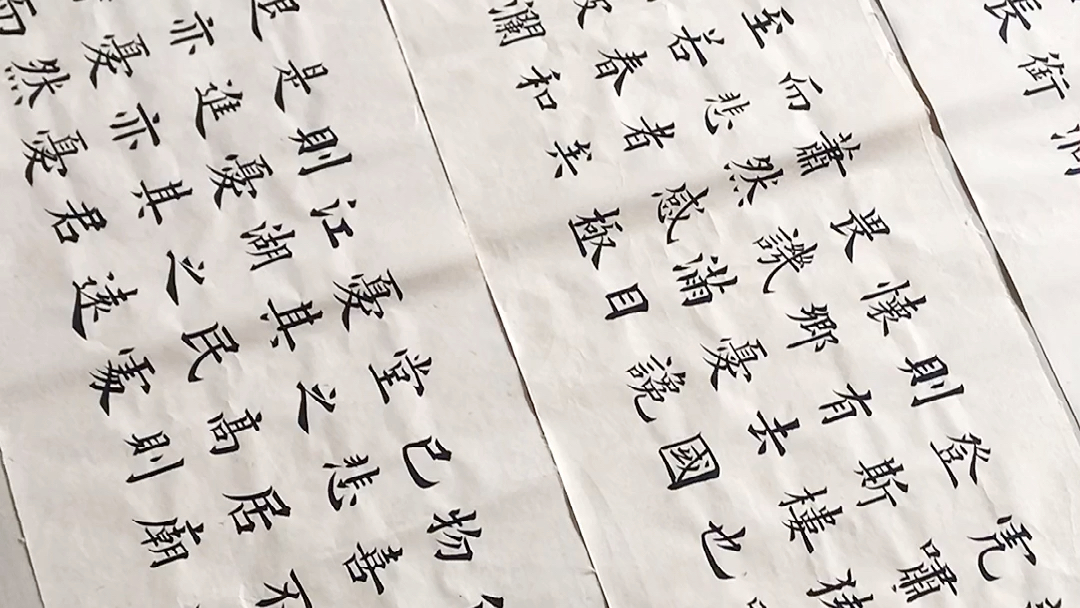 銜
長
虎嘯猿
登斯樓也
則有去國
懷鄉憂讒
畏譏滿目
蕭然感極
而悲者矣
至若春和
波瀾
物喜不
己悲居廟
堂之高則
憂其民處
江湖之遠
則憂其君
是進亦憂
退亦憂然
而